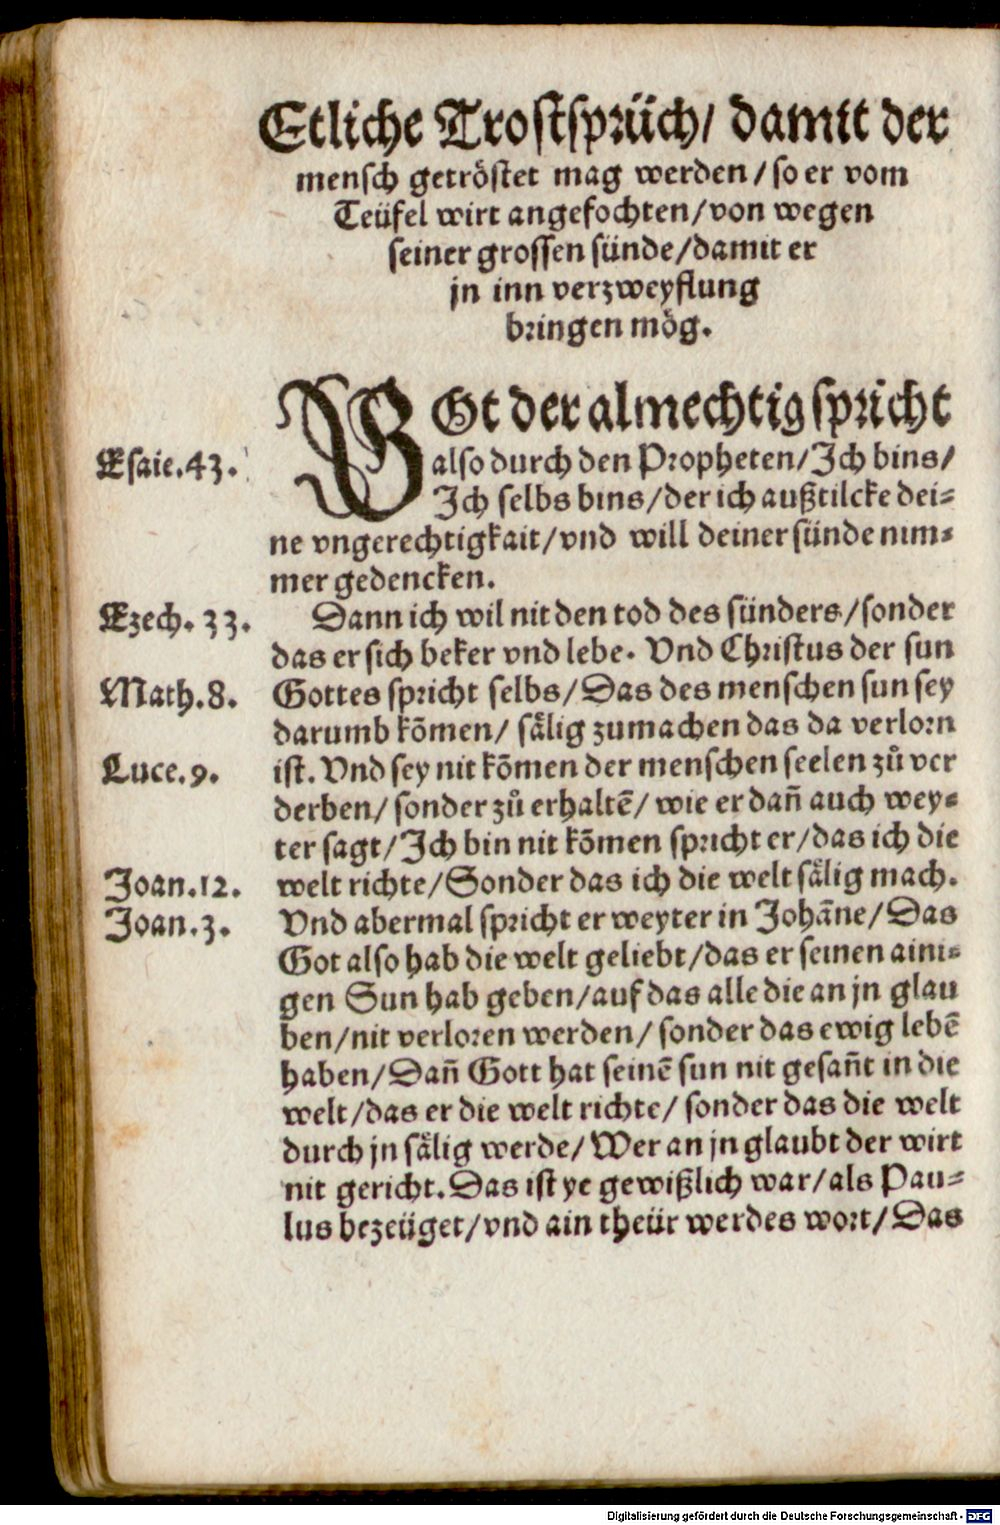 Etliche Trostsprüch/ damit der
mensch getröstet mag werden/ so er vom
Teüfel wirt angefochten/ von wegen
seiner grossen sünde/ damit er
jn inn verzweyflung
bringen mög.
GOt der almechtig spricht
Esaie.43. also durch den Propheten/ Ich bins/
Ich selbs bins/ der ich außtilcke dei-
ne vngerechtigkait/ vnd will deiner sünde nim-
mer gedencken.
Ezech. 33. Dann ich wil nit den tod des sünders/ sonder
das er sich beker vnd lebe. Vnd Christus der sun
Math.8. Gottes spricht selbs/ Das des menschen sun sey
darumb kōmen/ sälig zumachen das da verlorn
Luce.9. ist. Vnd sey nit kōmen der menschen seelen zů ver
derben/ sonder zů erhaltē/ wie er dañ auch wey-
ter sagt/ Ich bin nit kōmen spricht er/ das ich die
Joan.12. welt richte/ Sonder das ich die welt sälig mach.
Joan.3. Vnd abermal spricht er weyter in Johāne/ Das
Got also hab die welt geliebt/ das er seinen aini-
gen Sun hab geben/ auf das alle die an jn glau
ben/ nit verloren werden/ sonder das ewig lebē
haben/ Dañ Gott hat seinē sun nit gesañt in die
welt/ das er die welt richte/ sonder das die welt
durch jn sälig werde/ Wer an jn glaubt der wirt
nit gericht. Das ist ye gewißlich war/ als Pau-
lus bezeüget/ vnd ain theür werdes wort/ Das
Digitalisierung gefördert durch die Deutsche Forschungsgemeinschaft - DFG